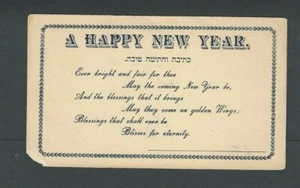 A HAPPY NEW YEAR.
כתיבה וחתימה טובה
Ever bright and fair for thee
May the coming New Year be,
And the blessings that it brings
May they come on golden Wings;
Blessings that shall ever be
Blisses for eternity.